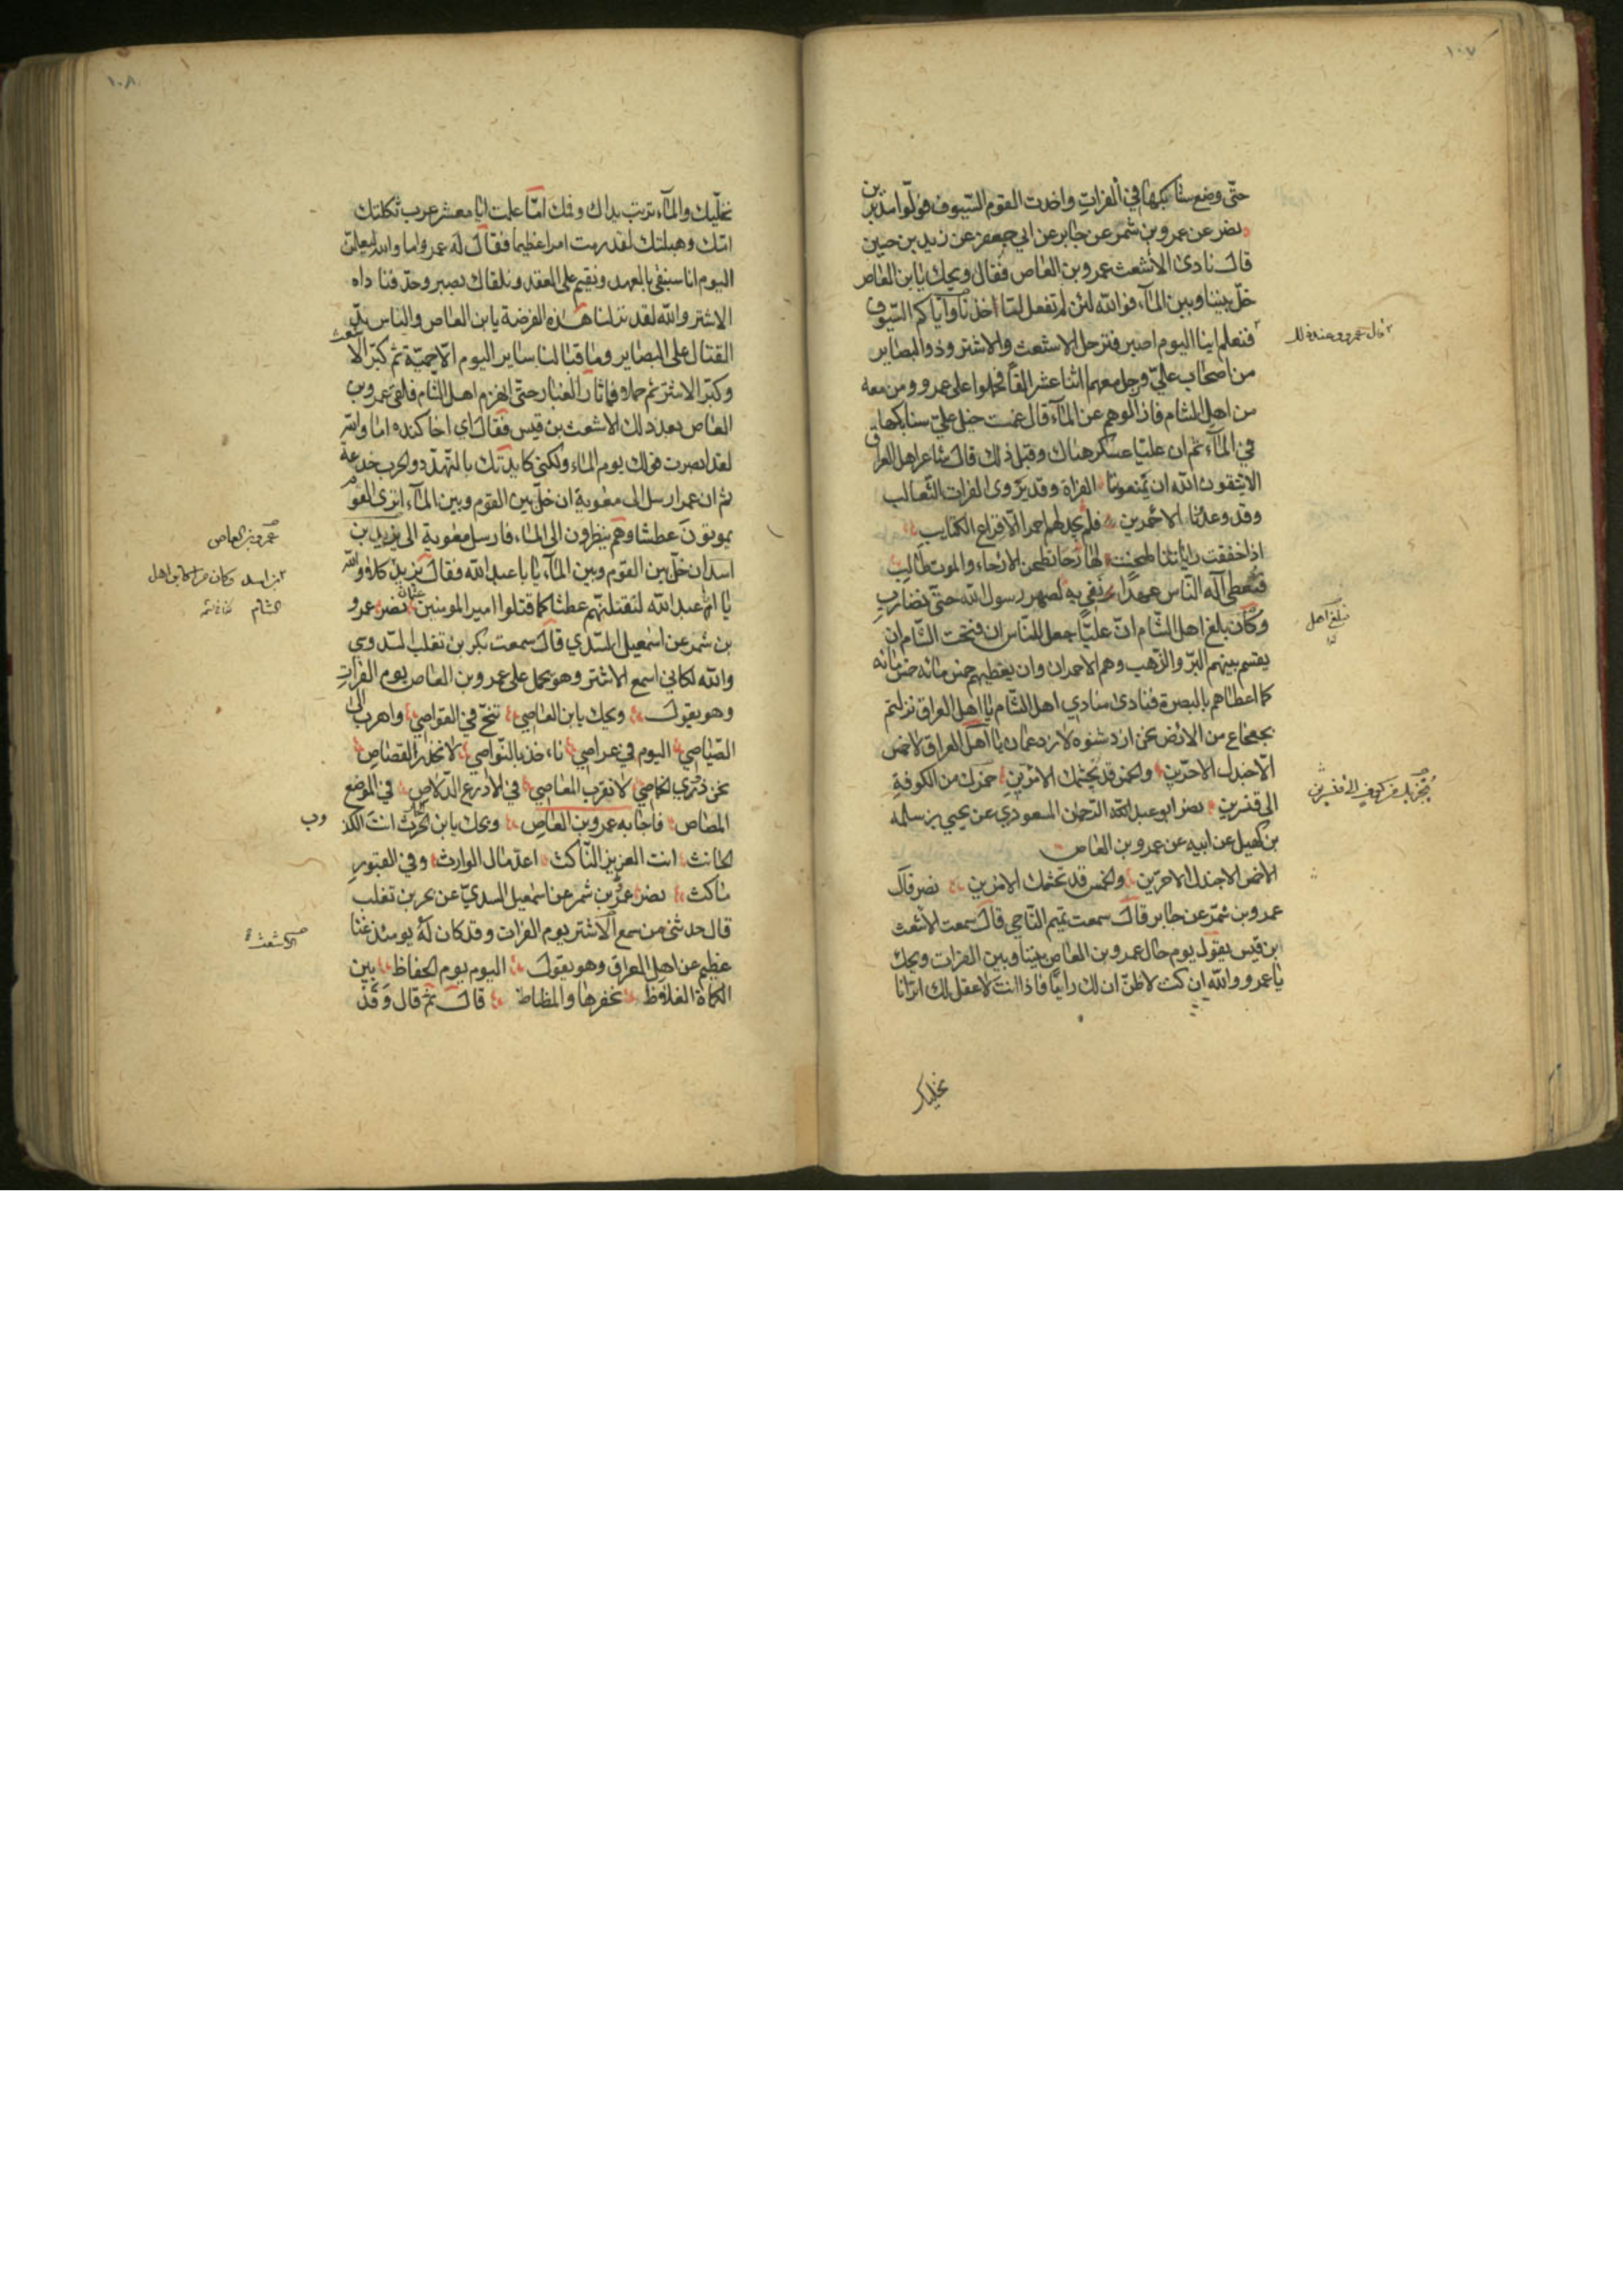 ١٠٧
حتّى وضع سنابكها في الفرات واخذت القوم السّيوف فولّوا مدبرين
نصر عن عمرو بن شمر عن جابر عن ابي جعفر عن زيد بن حسين
قال نادى الأشعث عمرو بن العاص فقال ويحك يا بن العاص
خلّ بيننا وبين الماء فوالله لئن لم تفعل لتأخذنا واياكم السّيوف
فنعلم اينا اليوم اصبر فترجل الاشعث والاشتر وذووا البصاير
من اصحاب عليّ وترجل معهما اثنا عشر الفاً فحملوا على عمرو ومن معه
من اهل الشام فازالوهم عن الماء قال غمست خيل عليّ سنابكها
في الماء ثم ان عليّا عسكر هناك وقبل ذلك قال شاعر اهل العراق
الا يتقون الله ان يمنعونا الفراة وقد يروى الفرات الثّعالب
وقد وعدنا الاحمرين فلم نجد لهم احمرا الّا قراع الكتايب
اذا خفقت راياتنا طحنت لها رحا تطحن الارحاء والموت طالب
فتعطى اله النّاس عهدًا نفي به لصهر رسول الله حتّى نضارب
وكان بلغ اهل الشّام انّ عليّا جعل للنّاس ان فتحت الشّام ان
يقسم بينهم البرّ والذّهب وهم الاحمران وان يعطيهم خمس مائه خمس مائه
كما اعطاهم بالبصرة فنادى منادي اهل الشّام يا اهل العراق نزلتم
بجعجاع من الارض نحن ازد شنوه لا ازد عمان يا اهل العراق لا خمس
الّا جندل الاحرّين والخمس قد تجشمك الامرّين حمزك من الكوفة
الى قنسرين نصر ابو عبد الرّحمان المسعودي عن يحيى بن سلمه
بن كهيل عن ابيه عن عمرو بن العاص
لا خمس الا جندل الاحرّين والخمس قد تجشمك الامرّين نصر قال
عمرو بن شمّر عن جابر قال سمعت تميم النّاجي قال سمعت الاشعث
ابن قيس يقول يوم حال عمرو بن العاص بيننا وبين الفرات ويحك
يا عمرو والله ان كنت لاظنّ ان لك رايًا فاذا انت لا عقل لك اترانا
نخليك
قال عمرو وعند ذلك
فبلغ اهل
١٠٨
نخلّيك والماء تربت يداك وفمك امّا علمت انّا معشر عرب ثكلتك
امّك وهبلتك لقد رمت امرا عظيما فقال له عمرو اما والله لتعلمنّ
اليوم انا سنفي بالعهد ونقيم على العقد ونلقاك بصبر وجدّ فناداه
الاشتر والله لقد نزلنا هذه الفرضة يا بن العاص والناس تريد
القتال على البصاير وما قتالنا ساير اليوم الّا حميّة ثم كبّر الاشعث
وكبّر الاشتر ثم حملا فما ثار الغبار حتّى انهزم اهل الشام فلقى عمرو بن
العاص بعد ذلك الاشعث بن قيس فقال اي اخا كنده اما والله
لقد ابصرت قولك يوم الماء ولكني كايدتك بالتهدّد والحرب خدعة
ثم ان عمرا رسل الى معوية ان خلّ بين القوم وبين الماء اترى القوم
يموتون عطشا وهم ينظرون الى الماء فارسل معوية الى يزيد بن
اسد ان خلّ بين القوم وبين الماء يا با عبد الله فقال يزيد كلا والله
يا ابا عبد الله لنقتلنّهم عطشا كما قتلوا امير المومنين عثمان نصر عمرو
بن شمر عن اسمعيل السّدي قال سمعت بكر بن تغلب السّدوسي
والله لكاني اسمع الاشتر وهو يحمل على عمرو بن العاص يوم الفرات
وهو يقول ويحك يا بن العاصي تنحّ في القواصي واهرب الى
الصّياصي اليوم في عراصي ناءخذ بالنّواصي لا نحذر القصاص
نحن ذوي الخماصي لا نقرب المعاصي في الادرع الدّلاص في الموضع
المصاص فاجابه عمرو بن العاص ويحك يا بن الحرث انت الكذوب
الحانث انت العزيز النّاكث اعدّ مال الوارث وفي القبور
ماكث نصر عمرو بن شمر عن اسمعيل السديّ عن بحر بن تغلب
قال حدثني من سمع الاشتر يوم الفرات وقد كان له يومئذ غنا
عظيم عن اهل العراق وهو يقول اليوم يوم الحفاظ بين
الكماة الغلاظ نحفزها والمظاظ قال ثم قال وقد
عمرو بن العاص
بن اسد وكان
اهل الشام
الاشعث